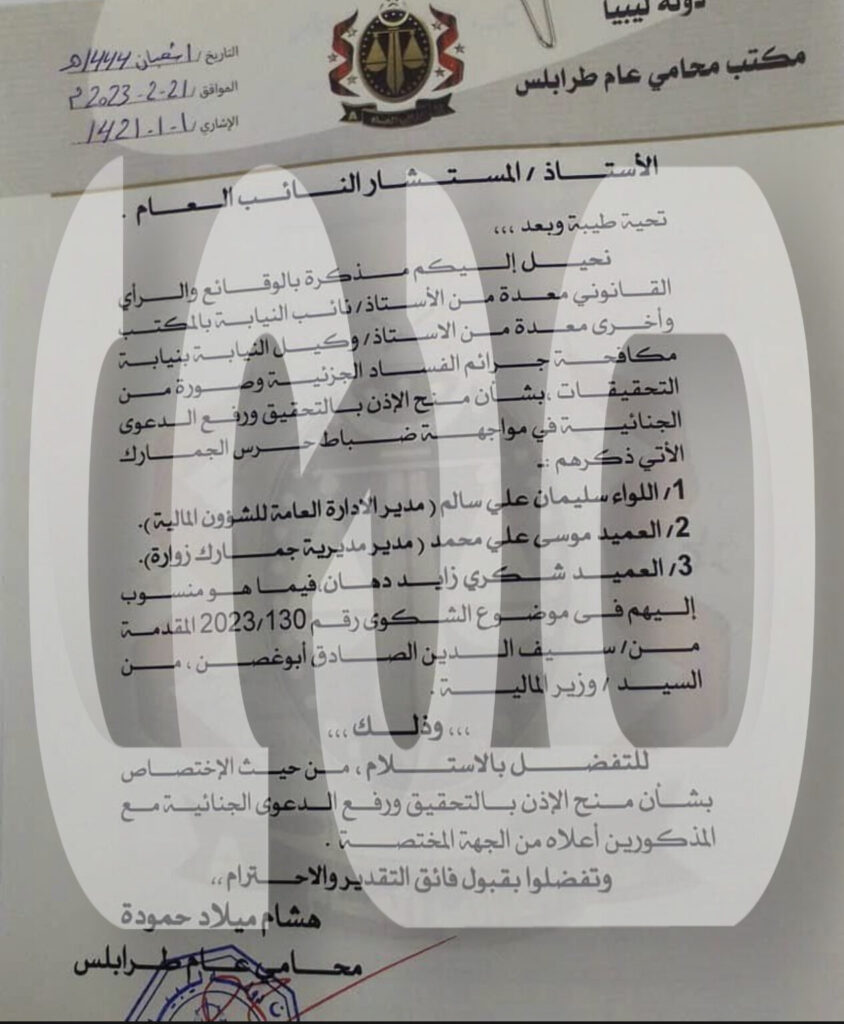 دولة ليبيا
مكتب محامي عام طرابلس
التاريخ / 1 شعبان 1444هـ
الموافق / 21-2-2023م
الإشاري / 1-1-1421
الأستاذ / المستشار النائب العام .
تحية طيبة وبعد ،،،
نحيل إليكم مذكرة بالوقائع والرأي
القانوني معدة من الأستاذ/ نائب النيابة بالمكتب
وأخرى معدة من الاستاذ/ وكيل النيابة بنيابة
مكافحة جرائم الفساد الجزئية وصورة من
التحقيقات ،بشأن منح الإذن بالتحقيق ورفع الدعوى
الجنائية في مواجهة ضباط حرس الجمارك
الأتي ذكرهم :-
1/ اللواء سليمان علي سالم ( مدير الادارة العامة للشؤون المالية).
2/ العميد موسى علي محمد ( مدير مديرية جمارك زوارة).
3/ العميد شكري زايد دهان،فيما هو منسوب
إليهم فى موضوع الشكوى رقم 2023/130 المقدمة
من/ سيف الدين الصادق أبوغصن ، من
السيد / وزير المالية .
،،، وذلك ،،،
للتفضل بالاستلام ، من حيث الإختصاص
بشأن منح الإذن بالتحقيق ورفع الدعوى الجنائية مع
المذكورين أعلاه من الجهة المختصة .
وتفضلوا بقبول فائق التقدير والاحترام ،،
هشام ميلاد حمودة
محامي عام طرابلس